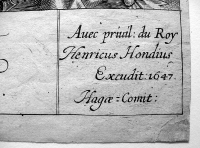 Avec privil: du Roy
Henricus Hondius
Excudit 1647.
Hagæ-Comit: